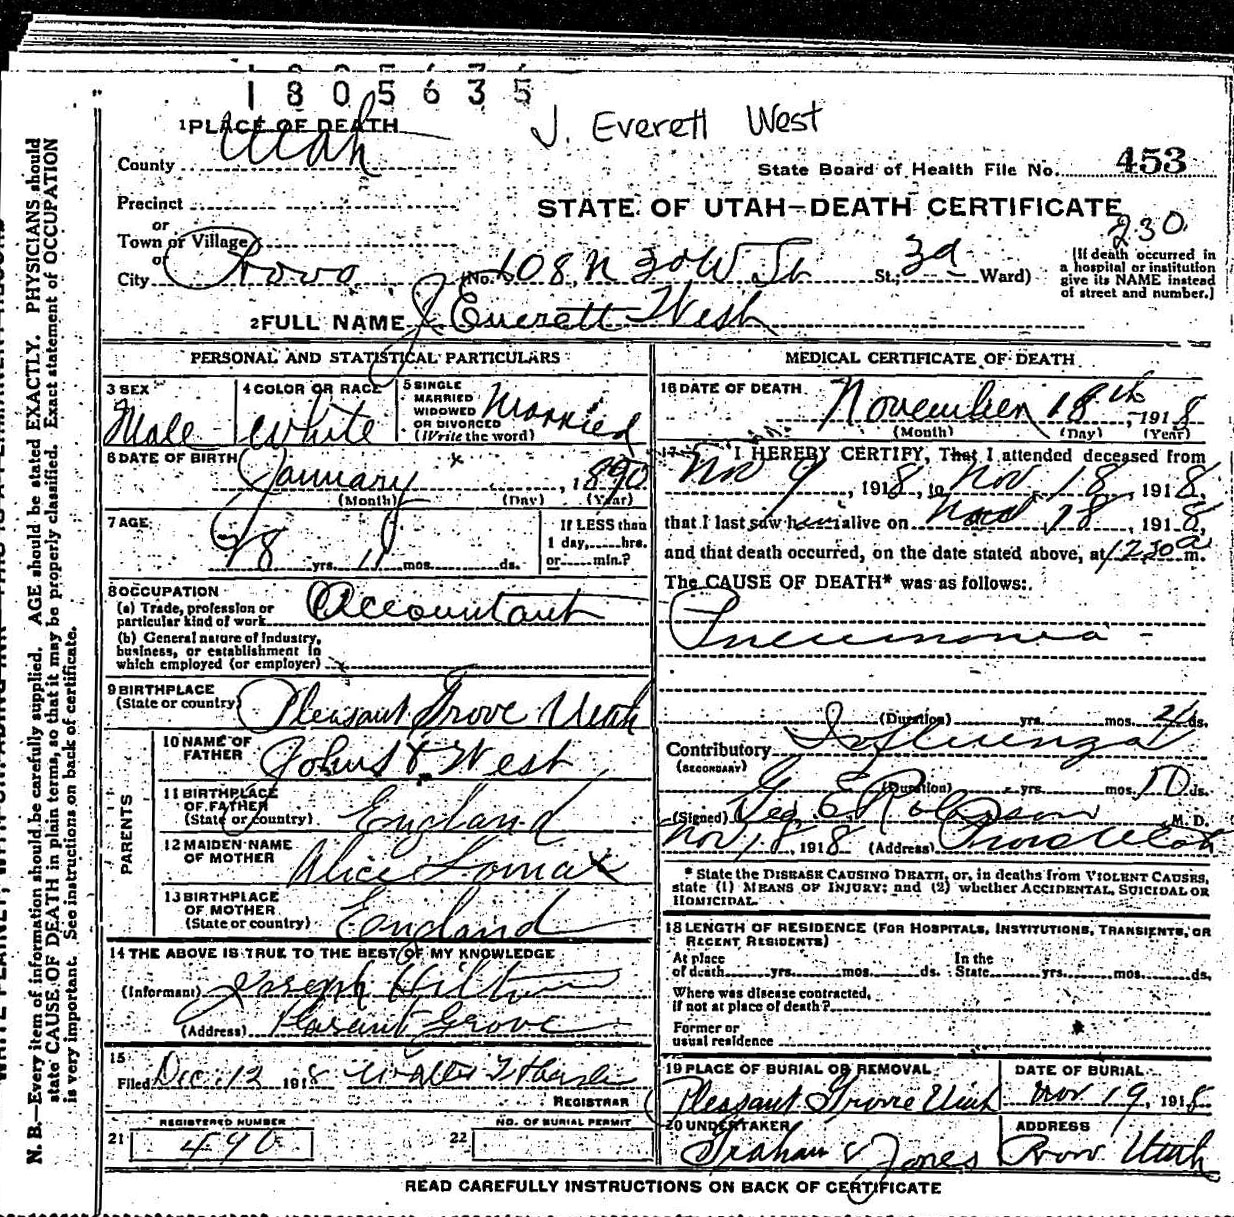 1805635
J. Everett West
1 PLACE OF DEATH
County Utah
State Board of Health File No. 453
Precinct
STATE OF UTAH—DEATH CERTIFICATE
or
Town or Village
230
or
City Provo (No. 108 N 3d W St St., 3d Ward)
[If death occurred in
a hospital or institution
give its NAME instead
of street and number.]
2 FULL NAME J Everett West
PERSONAL AND STATISTICAL PARTICULARS
3 SEX
Male
4 COLOR OR RACE
White
5 SINGLE
MARRIED
WIDOWED
OR DIVORCED
(Write the word)
Married
6 DATE OF BIRTH
January , 1890
(Month) (Day) (Year)
7 AGE
28 yrs. 11 mos. ds.
If LESS than
1 day, hrs.
or min.?
8 OCCUPATION
(a) Trade, profession or
particular kind of work Accountant
(b) General nature of Industry,
business, or establishment in
which employed (or employer)
9 BIRTHPLACE
(State or country) Pleasant Grove Utah
PARENTS
10 NAME OF
FATHER West
11 BIRTHPLACE
OF FATHER
(State or country) England
12 MAIDEN NAME
OF MOTHER Alice Lomax
13 BIRTHPLACE
OF MOTHER
(State or country) England
14 THE ABOVE IS TRUE TO THE BEST OF MY KNOWLEDGE
(Informant) Joseph Hilton
(Address) Pleasant Grove
15
Filed Dec. 12 1918 Walter T
REGISTRAR
REGISTERED NUMBER
21 490
NO. OF BURIAL PERMIT
22
MEDICAL CERTIFICATE OF DEATH
16 DATE OF DEATH
November 18th, 1918
(Month) (Day) (Year)
17 I HEREBY CERTIFY, That I attended deceased from
Nov 9, 1918, to Nov 18, 1918,
that I last saw him alive on Nov 18, 1918,
and that death occurred, on the date stated above, at 1230 a m.
The CAUSE OF DEATH* was as follows:
Pneumonia
(Duration) yrs. mos. ds.
Contributory Influenza
(SECONDARY)
(Duration) yrs. mos. 10 ds.
(Signed) Geo E Robison M. D.
Nov 18, 1918 (Address) Provo Utah
* State the DISEASE CAUSING DEATH, or, in deaths from VIOLENT CAUSES,
state (1) MEANS OF INJURY; and (2) whether ACCIDENTAL, SUICIDAL OR
HOMICIDAL.
18 LENGTH OF RESIDENCE (FOR HOSPITALS, INSTITUTIONS, TRANSIENTS, OR
RECENT RESIDENTS)
At place In the
of death yrs. mos. ds. State yrs. mos. ds.
Where was disease contracted,
if not at place of death?
Former or
usual residence
19 PLACE OF BURIAL OR REMOVAL
Pleasant Grove Utah
DATE OF BURIAL
Nov 19, 1918
20 UNDERTAKER
Graham & Jones
ADDRESS
Provo Utah
READ CAREFULLY INSTRUCTIONS ON BACK OF CERTIFICATE
N. B.—Every item of information should be carefully supplied. AGE should be stated EXACTLY. PHYSICIANS should
state CAUSE OF DEATH in plain terms, so that it may be properly classified. Exact statement of OCCUPATION
is very important. See instructions on back of certificate.